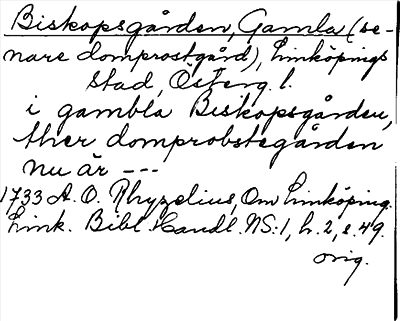 Biskopsgården, Gamla (se-
nare domprostgård), Linköpings
stad, Österg. l.
i gambla Biskopsgården,
ther domprobstegården
nu är ---
1733 A. O. Rhyzelius, Om Linköping.
Link. Bibl. Handl. NS: 1, h. 2, s. 49.
orig.